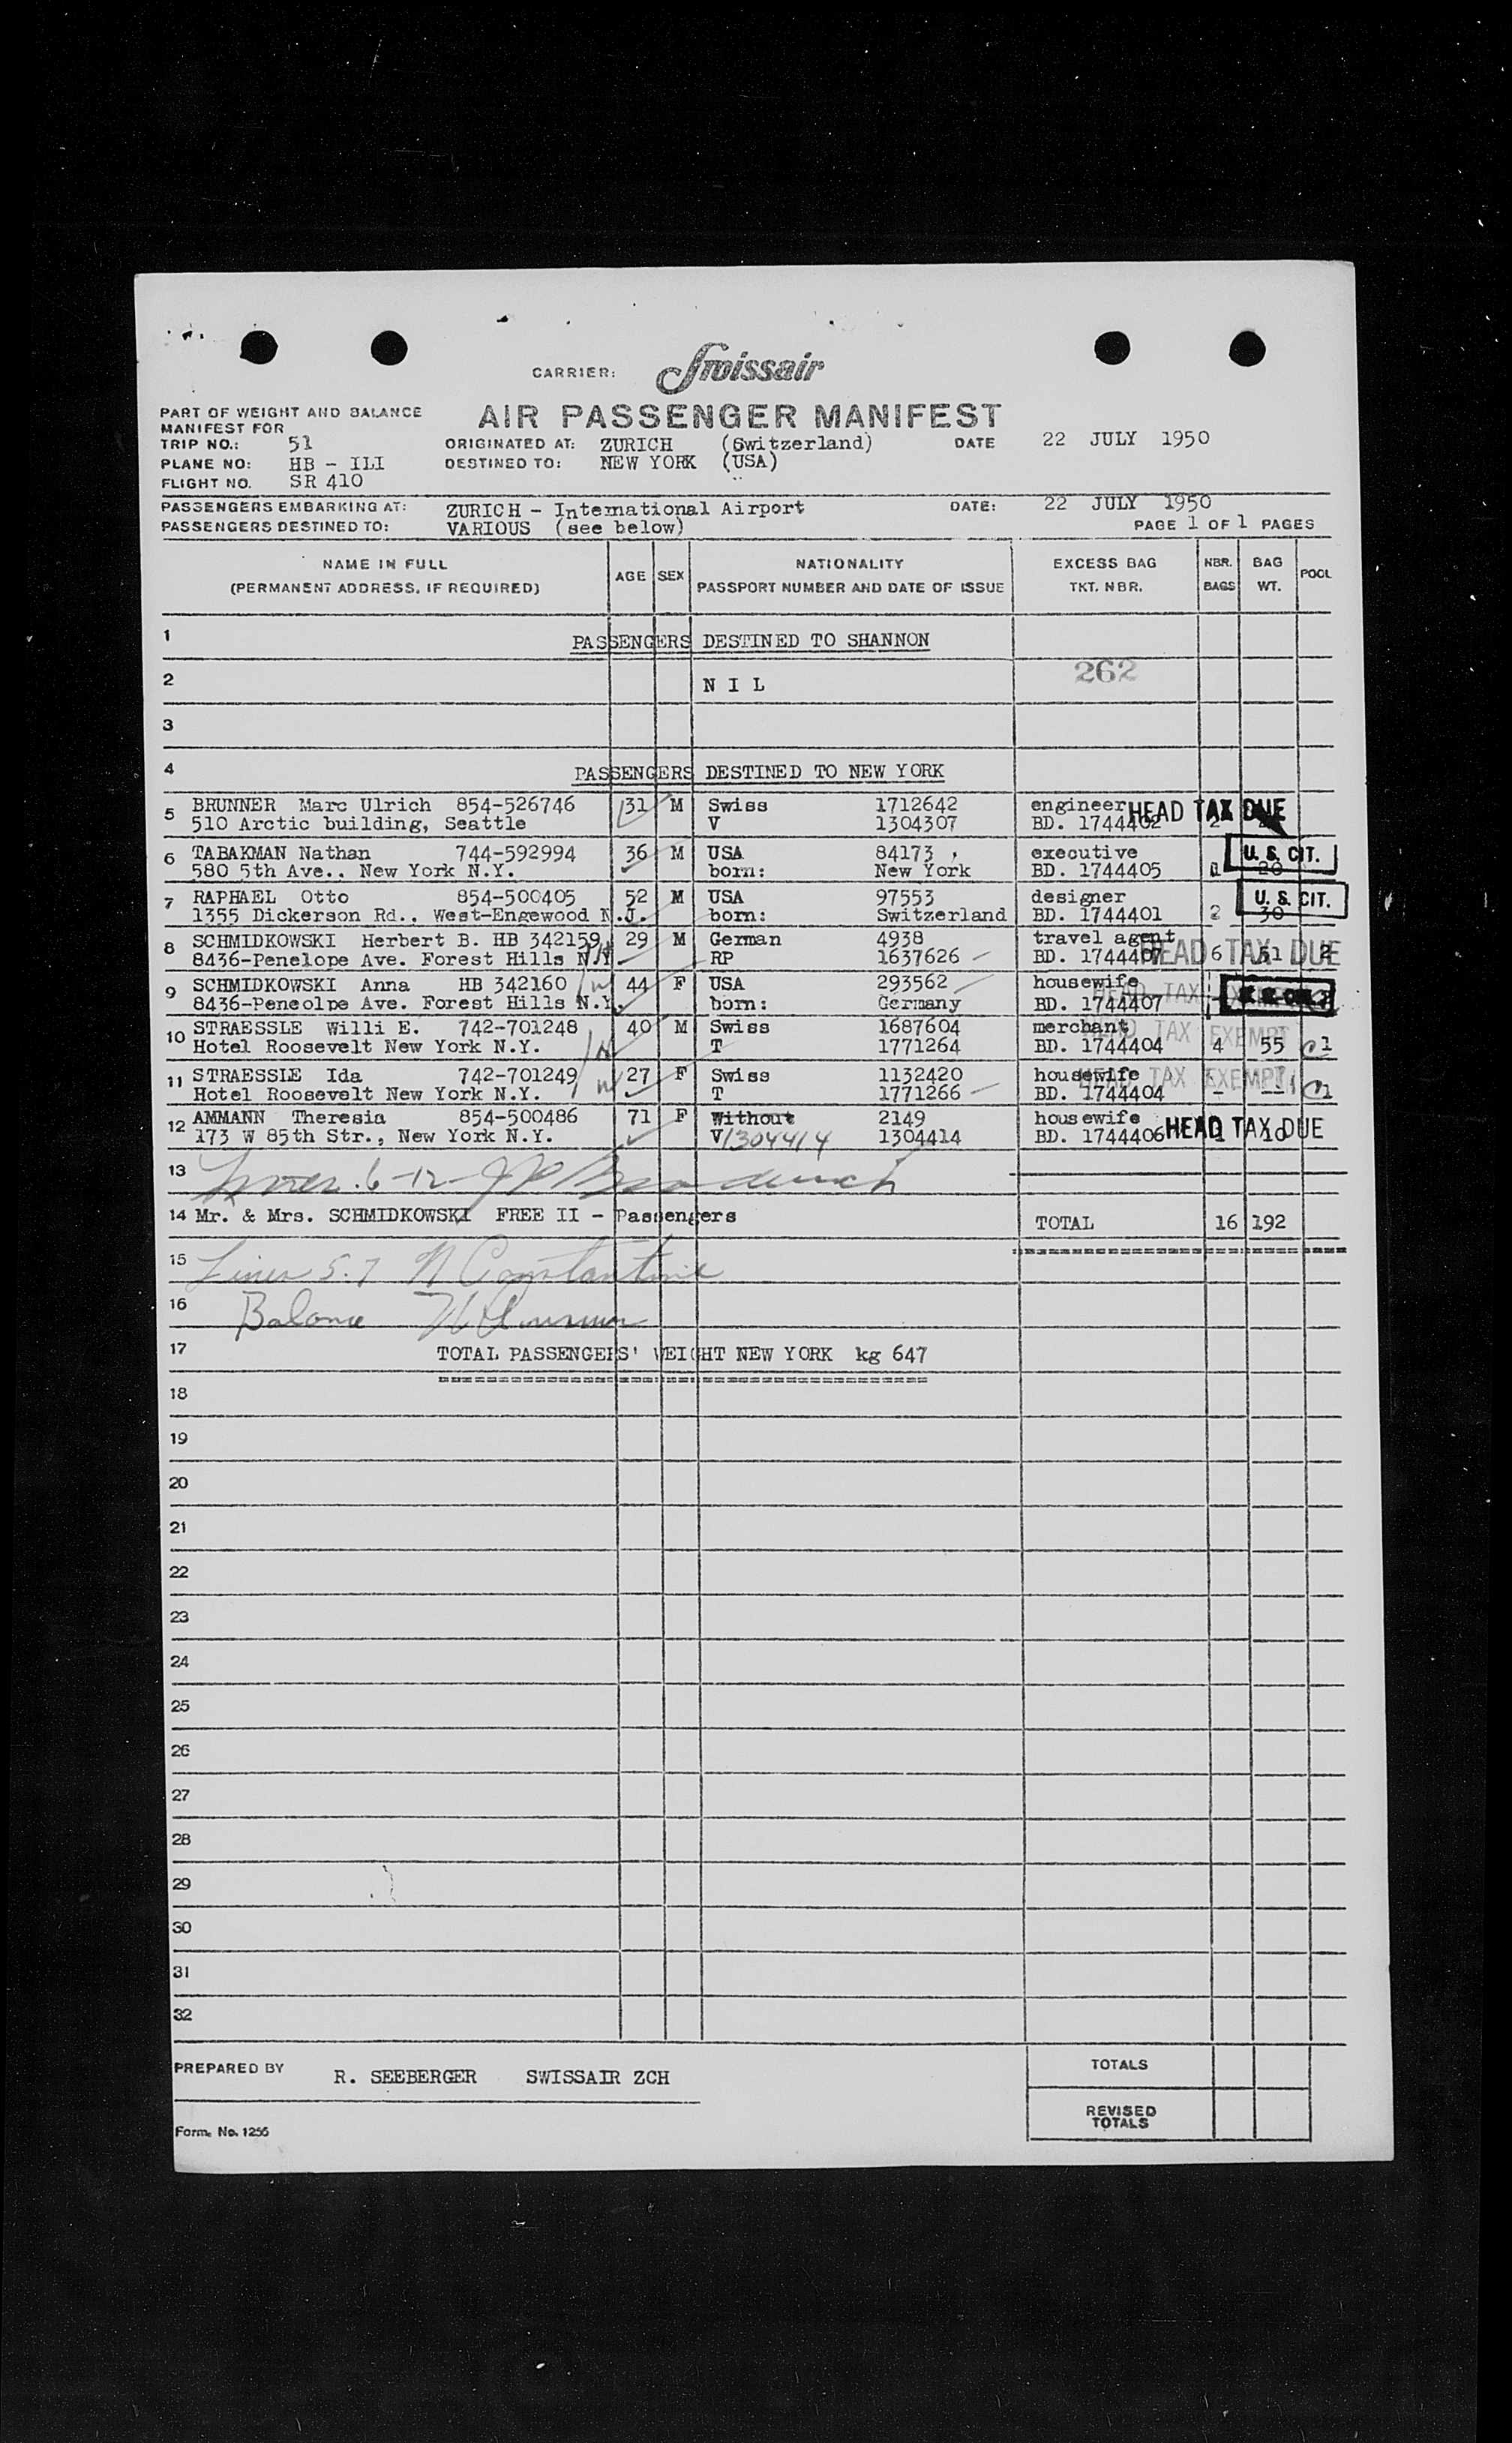 CARRIER: Swissair
PART OF WEIGHT AND BALANCE
MANIFEST FOR
AIR PASSENGER MANIFEST
TRIP NO.: 51 ORIGINATED AT: ZURICH (Switzerland) DATE 22 JULY 1950
PLANE NO: HB - ILI DESTINED TO: NEW YORK (USA)
FLIGHT NO. SR 410
PASSENGERS EMBARKING AT: ZURICH - International Airport DATE: 22 JULY 1950
PASSENGERS DESTINED TO: VARIOUS (see below) PAGE 1 OF 1 PAGES
NAME IN FULL AGE SEX NATIONALITY EXCESS BAG NBR. BAG POOL
(PERMANENT ADDRESS, IF REQUIRED) PASSPORT NUMBER AND DATE OF ISSUE TKT. NBR. BAGS WT.
1 PASSENGERS DESTINED TO SHANNON
2 N I L 262
3
4 PASSENGERS DESTINED TO NEW YORK
5 BRUNNER Marc Ulrich 854-526746 31 M Swiss 1712642 engineer HEAD TAX DUE
510 Arctic building, Seattle V 1304307 BD. 1744402 2
6 TABAKMAN Nathan 744-592994 36 M USA 84173 executive U. S. CIT.
580 5th Ave.. New York N.Y. born: New York BD. 1744405 1 20
7 RAPHAEL Otto 854-500405 52 M USA 97553 designer U. S. CIT.
1355 Dickerson Rd.. West-Engewood N.J. born: Switzerland BD. 1744401 2 30
8 SCHMIDKOWSKI Herbert B. HB 342159 29 M German 4938 travel agent HEAD TAX DUE
8436-Penelope Ave. Forest Hills N.Y. RP 1637626 BD. 1744407 6 51 2
9 SCHMIDKOWSKI Anna HB 342160 44 F USA 293562 housewife HEAD TAX
8436-Peneolpe Ave. Forest Hills N.Y. born: Germany BD. 1744407 -
10 STRAESSLE Willi E. 742-701248 40 M Swiss 1687604 merchant HEAD TAX EXEMPT
Hotel Roosevelt New York N.Y. T 1771264 BD. 1744404 4 55 1
11 STRAESSLE Ida 742-701249 27 F Swiss 1132420 housewife HEAD TAX EXEMPT
Hotel Roosevelt New York N.Y. T 1771266 BD. 1744404 - - 1
12 AMMANN Theresia 854-500486 71 F Without 2149 housewife HEAD TAX DUE
173 W 85th Str., New York N.Y. V 1304414 1304414 BD. 1744406 1 10
13 6-12
14 Mr. & Mrs. SCHMIDKOWSKI FREE II - Passengers TOTAL 16 192
15 Lines 5.7 N Constantine
16 Balance
17 TOTAL PASSENGERS' WEIGHT NEW YORK kg 647
18
19
20
21
22
23
24
25
26
27
28
29
30
31
32
PREPARED BY R. SEEBERGER SWISSAIR ZCH TOTALS
REVISED
TOTALS
Form. No. 1256